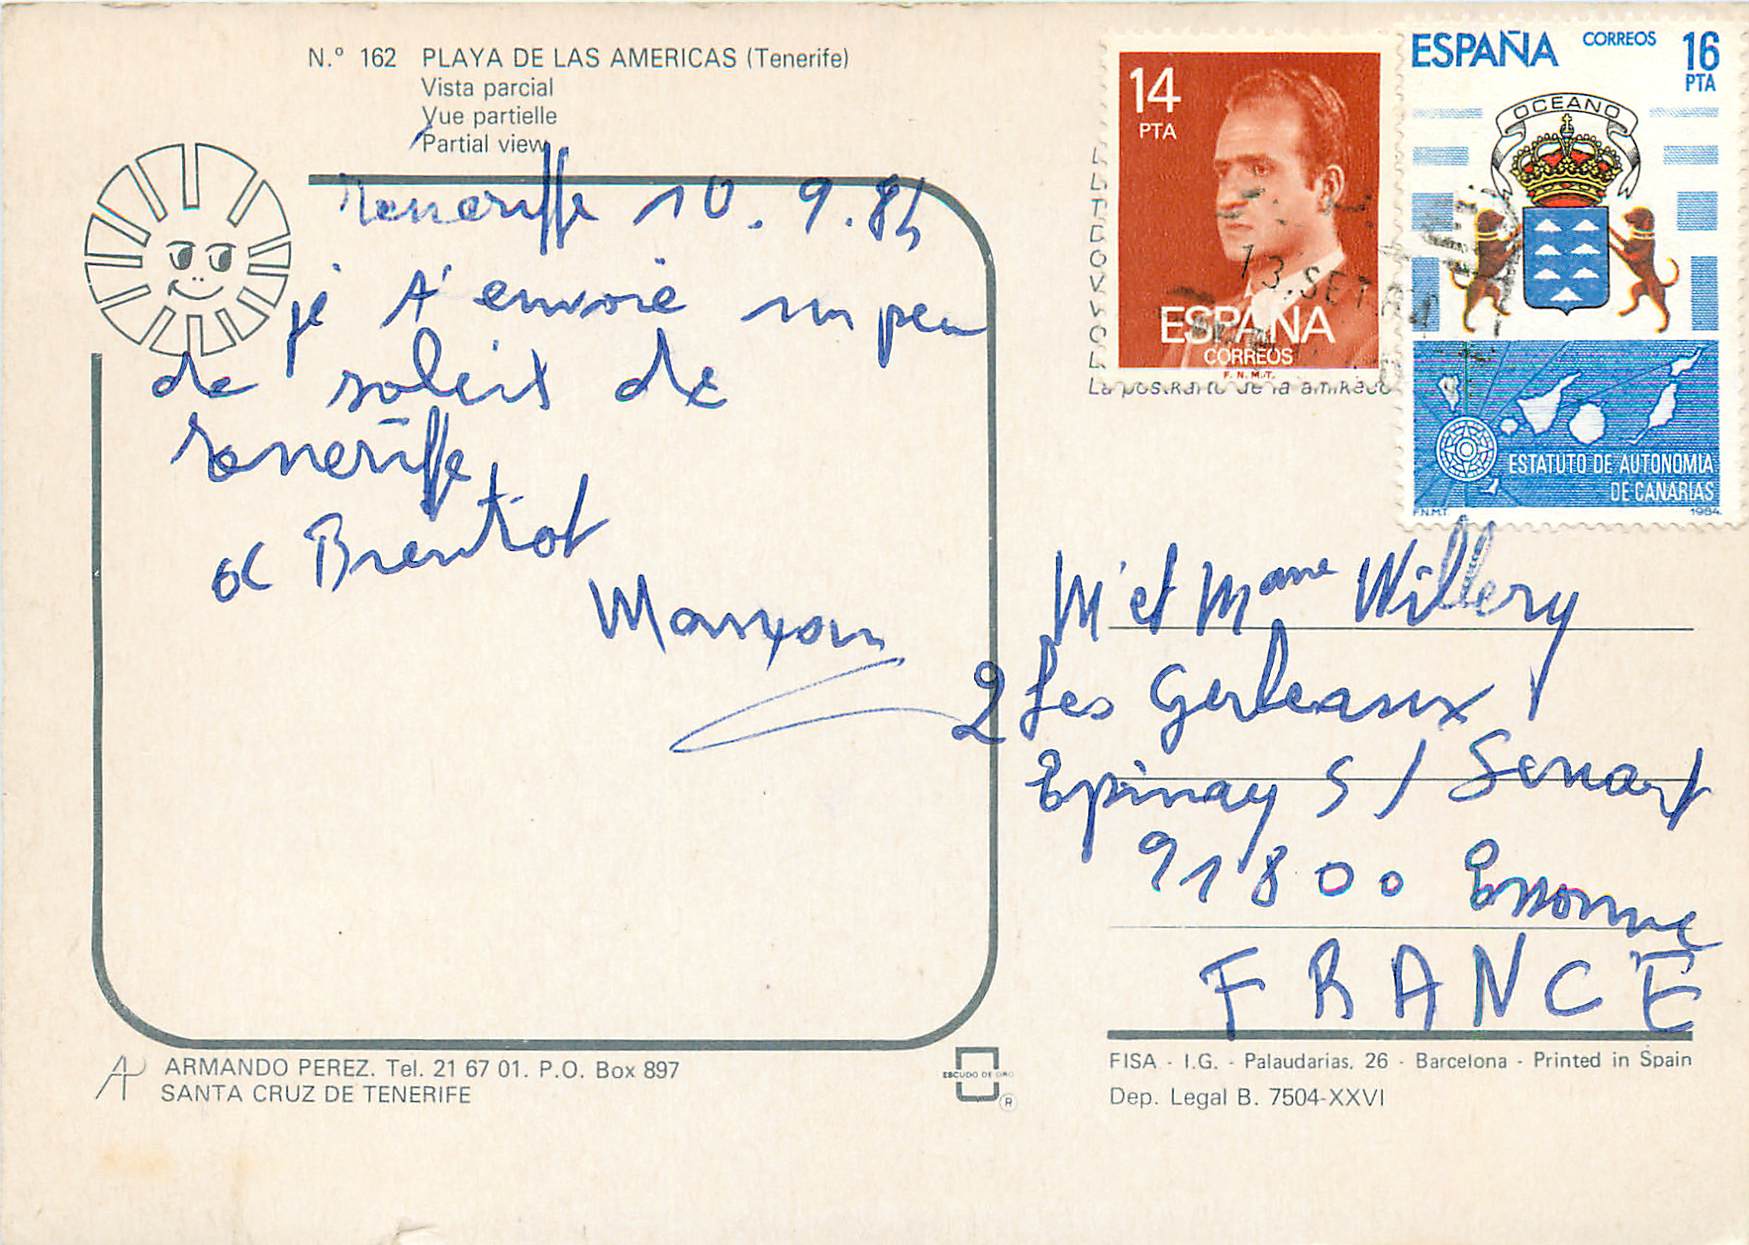 N.º 162 PLAYA DE LAS AMERICAS (Tenerife)
Vista parcial
Vue partielle
Partial view
Teneriffe 10.9.84
je t'envoie un peu
de soleil de
Teneriffe
a Brentot
2 Les Gerbeaux
Epinay S/ Senart
91800 Essonne
FRANCE
M et Mame Willery
14
PTA
ESPAÑA
CORREOS
F.N.M.T.
13.SET.84
ESPAÑA CORREOS 16
PTA
OCEANO
ESTATUTO DE AUTONOMIA
DE CANARIAS
F.N.M.T. 1984
ARMANDO PEREZ. Tel. 21 67 01. P.O. Box 897
SANTA CRUZ DE TENERIFE
ESCUDO DE ORO
®
FISA - I.G. - Palaudarias, 26 - Barcelona - Printed in Spain
Dep. Legal B. 7504-XXVI